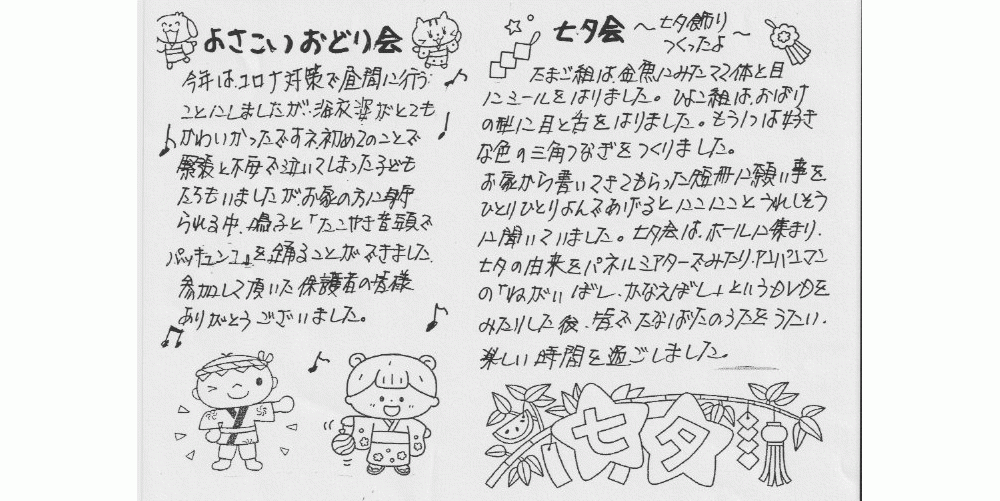 よさこいおどり会
今年は、コロナ対策で昼間に行う
ことにしましたが、浴衣姿がとても
かわいかったですネ。初めてのことで
緊張と不安で泣いてしまった子ども
たちもいましたがお家の方に見守
られる中、鳴子と「たこやき音頭で
パッキュンコ」を踊ることができました。
参加して頂いた保護者の皆様
ありがとうございました。
七夕会 〜七夕飾り
つくったよ〜
たまご組は、金魚にみたママ体と目
にシールをはりました。ひよこ組は、おばけ
の型に目と舌をはりました。もう1つは好き
な色の三角つなぎをつくりました。
お家から書いてきてもらった短冊に願い事を
ひとりひとりよんであげるとにこにことうれしそう
に聞いていました。七夕会は、ホールに集まり、
七夕の由来をパネルシアターでみたり、アンパンマン
の「ねがいぼし、かなえぼし」というDVDを
みたりした後、皆でたなばたのうたをうたい、
楽しい時間を過ごしました。
七夕